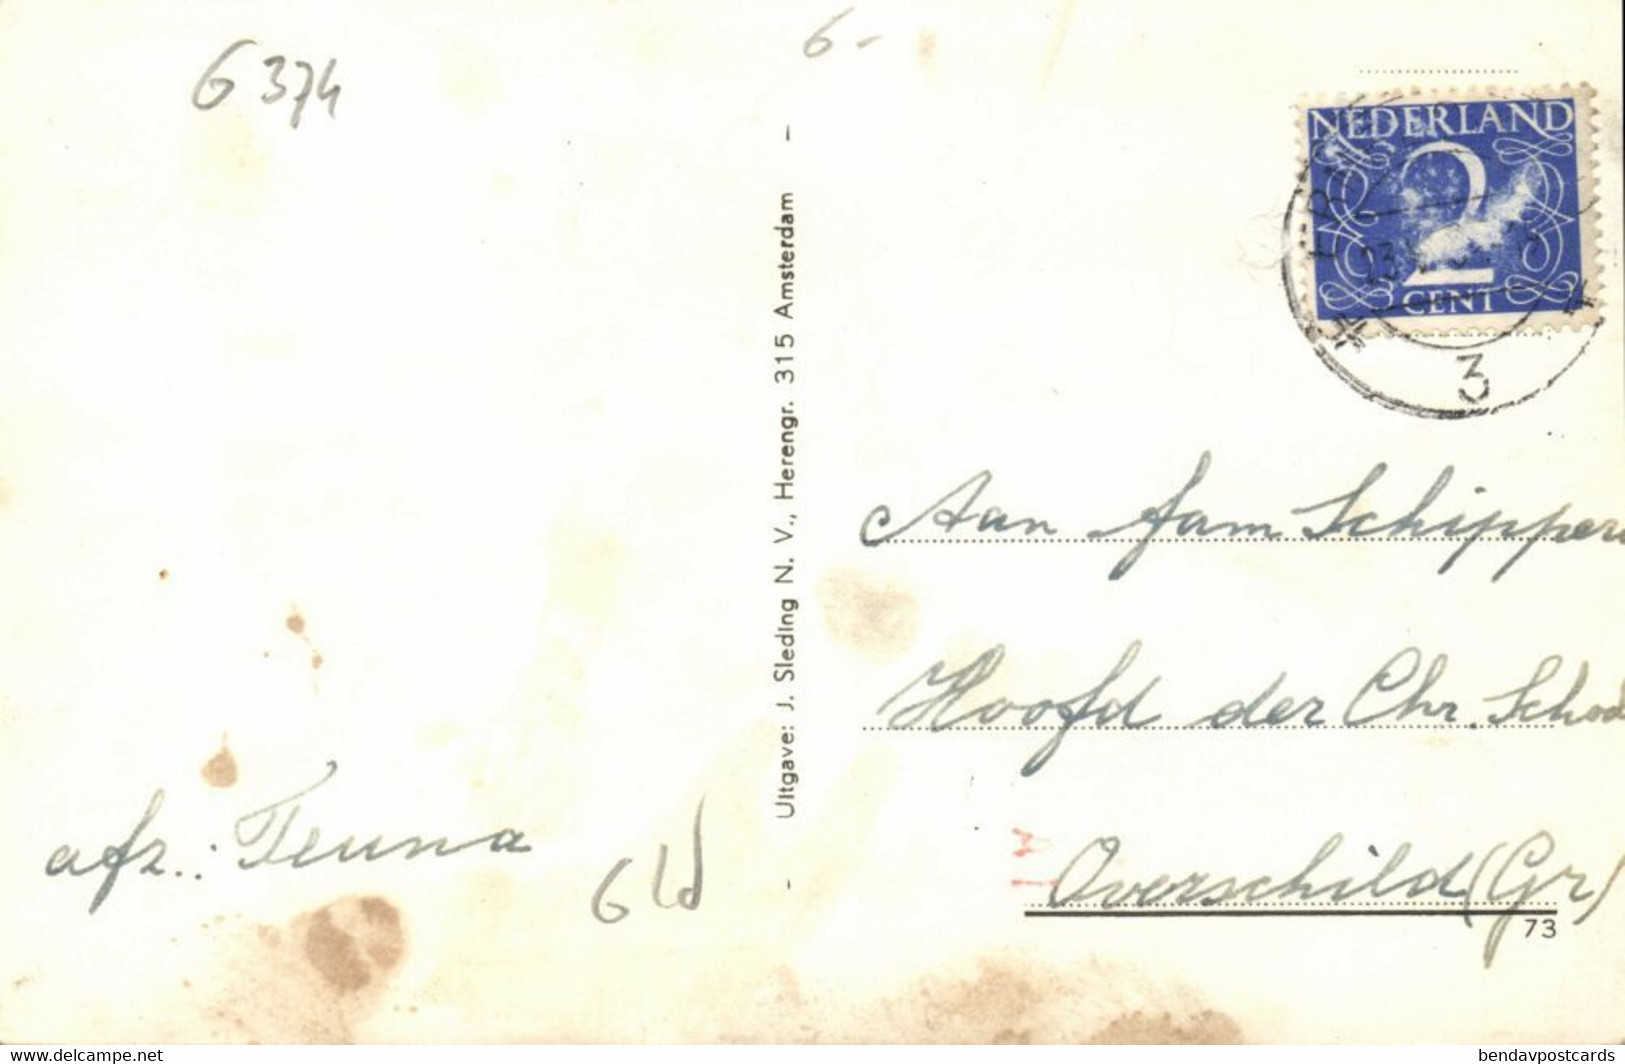 G 374
6-
NEDERLAND
2
CENT
3
Uitgave: J. Sleding N. V., Herengr. 315 Amsterdam
Aan fam Schippers
Hoofd der Chr. School
Overschild (Gr)
73
afz.: Teuna
Gld
www.delcampe.net
bendavpostcards